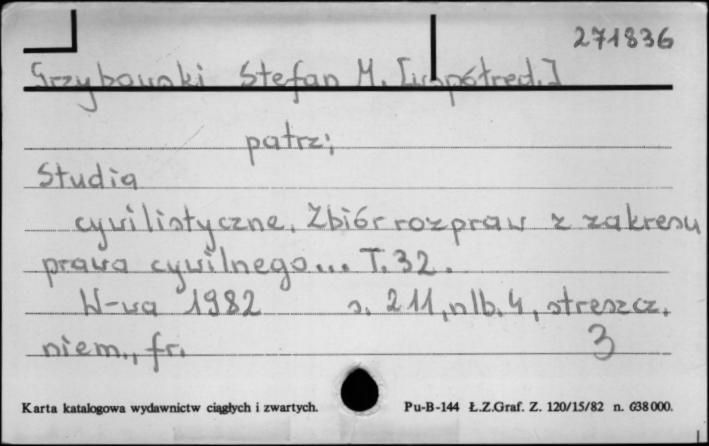 271836
Grzybowski Stefan M. [współred.]
patrz;
Studia
cywilistyczne. Zbiór rozpraw z zakresu
prawa cywilnego... T. 32.
W-wa 1982 s. 211, nlb. 4, streszcz.
niem., fr. 3
Karta katalogowa wydawnictw ciągłych i zwartych. Pu-B-144 Ł.Z.Graf. Z. 120/15/82 n. 638 000.